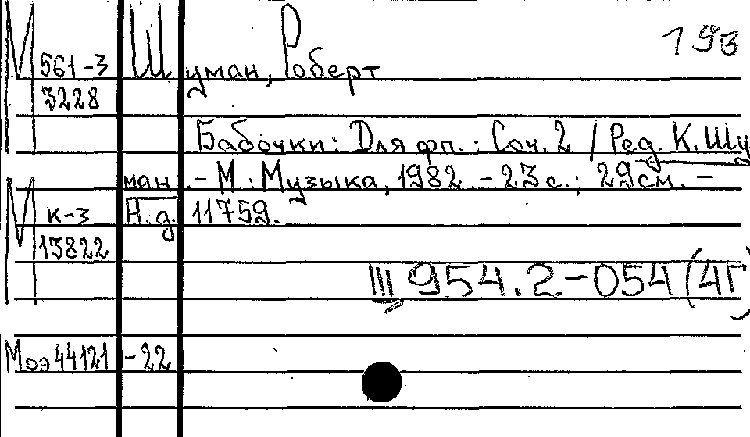 193
М 561-3 Шуман, Роберт
3228
Бабочки: Для фп.: Соч. 2 / Ред. К. Шу
ман. - М.: Музыка, 1982. - 23 с.; 29 см. -
М к-3 Н.д. 11759.
13822
III 954.2-054(4Г)
Моэ44121-22